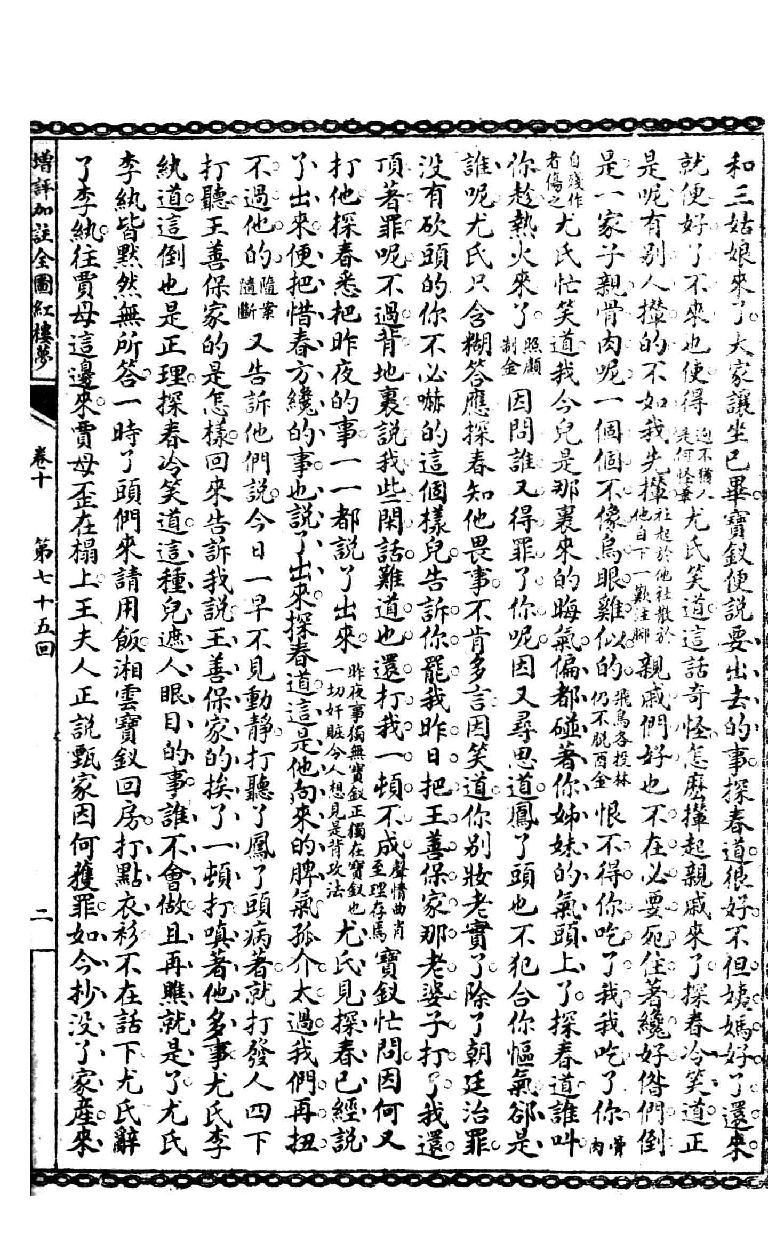 和三姑娘來了大家讓坐已畢寶釵便說要出去的事探春道很好不但姨媽好了還來
就便好了不來也便得迥不猶人是何怪案尤氏笑道這話奇怪怎麽攆起親戚來了探春冷笑道正
是呢有別人攆的不如我先攆社起於他社散於他自下一歎注腳親戚們好也不在必要死住著纔好偺們倒
是一家子親骨肉呢一個個不像烏眼雞似的飛鳥各投林仍不脫酉金恨不得你吃了我我吃了你骨肉
自殘作者傷之尤氏忙笑道我今兒是那裏來的晦氣偏都碰著你姊妹的氣頭上了探春道誰叫
你趁熱火來了照顧制金因問誰又得罪了你呢因又尋思道鳳丫頭也不犯合你慪氣卻是
誰呢尤氏只含糊答應探春知他畏事不肯多言因笑道你別妝老實了除了朝廷治罪
沒有砍頭的你不必嚇的這個樣兒告訴你罷我昨日把王善保家那老婆子打了我還
頂著罪呢不過背地裏說我些閑話難道也還打我一頓不成聲情曲肖至理存焉寶釵忙問因何又
打他探春悉把昨夜的事一一都說了出來昨夜事獨無寶釵正獨在寶釵也一切奸賍令人想見是背攻法尤氏見探春已經說
了出來便把惜春方纔的事也說了出來探春道這是他向來的脾氣孤介太過我們再扭
不過他的隨案隨斷又告訴他們說今日一早不見動靜打聽了鳳丫頭病著就打發人四下
打聽王善保家的是怎樣回來告訴我說王善保家的挨了一頓打嗔著他多事尤氏李
紈道這倒也是正理探春冷笑道這種兒遮人眼目的事誰不會做且再瞧就是了尤氏
李紈皆默然無所答一時丫頭們來請用飯湘雲寶釵回房打點衣衫不在話下尤氏辭
了李紈往賈母這邊來賈母歪在榻上王夫人正說甄家因何獲罪如今抄沒了家產來
增評加註全圖紅樓夢 卷十 第七十五回 二